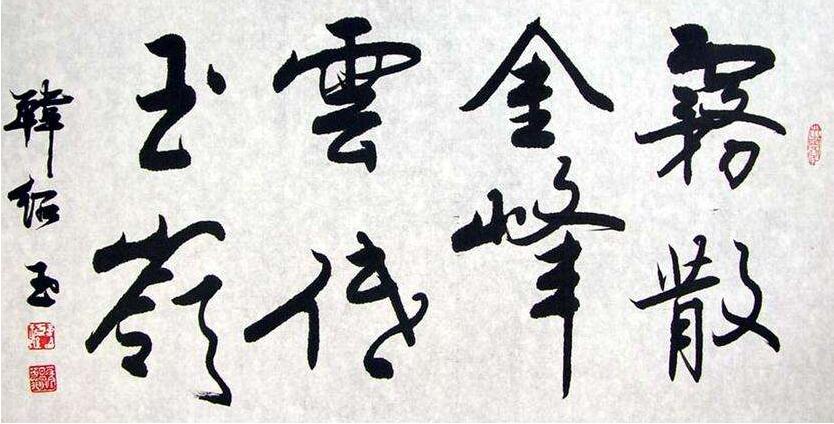 霧散
金峰
雲低
玉嶺
韓紹玉